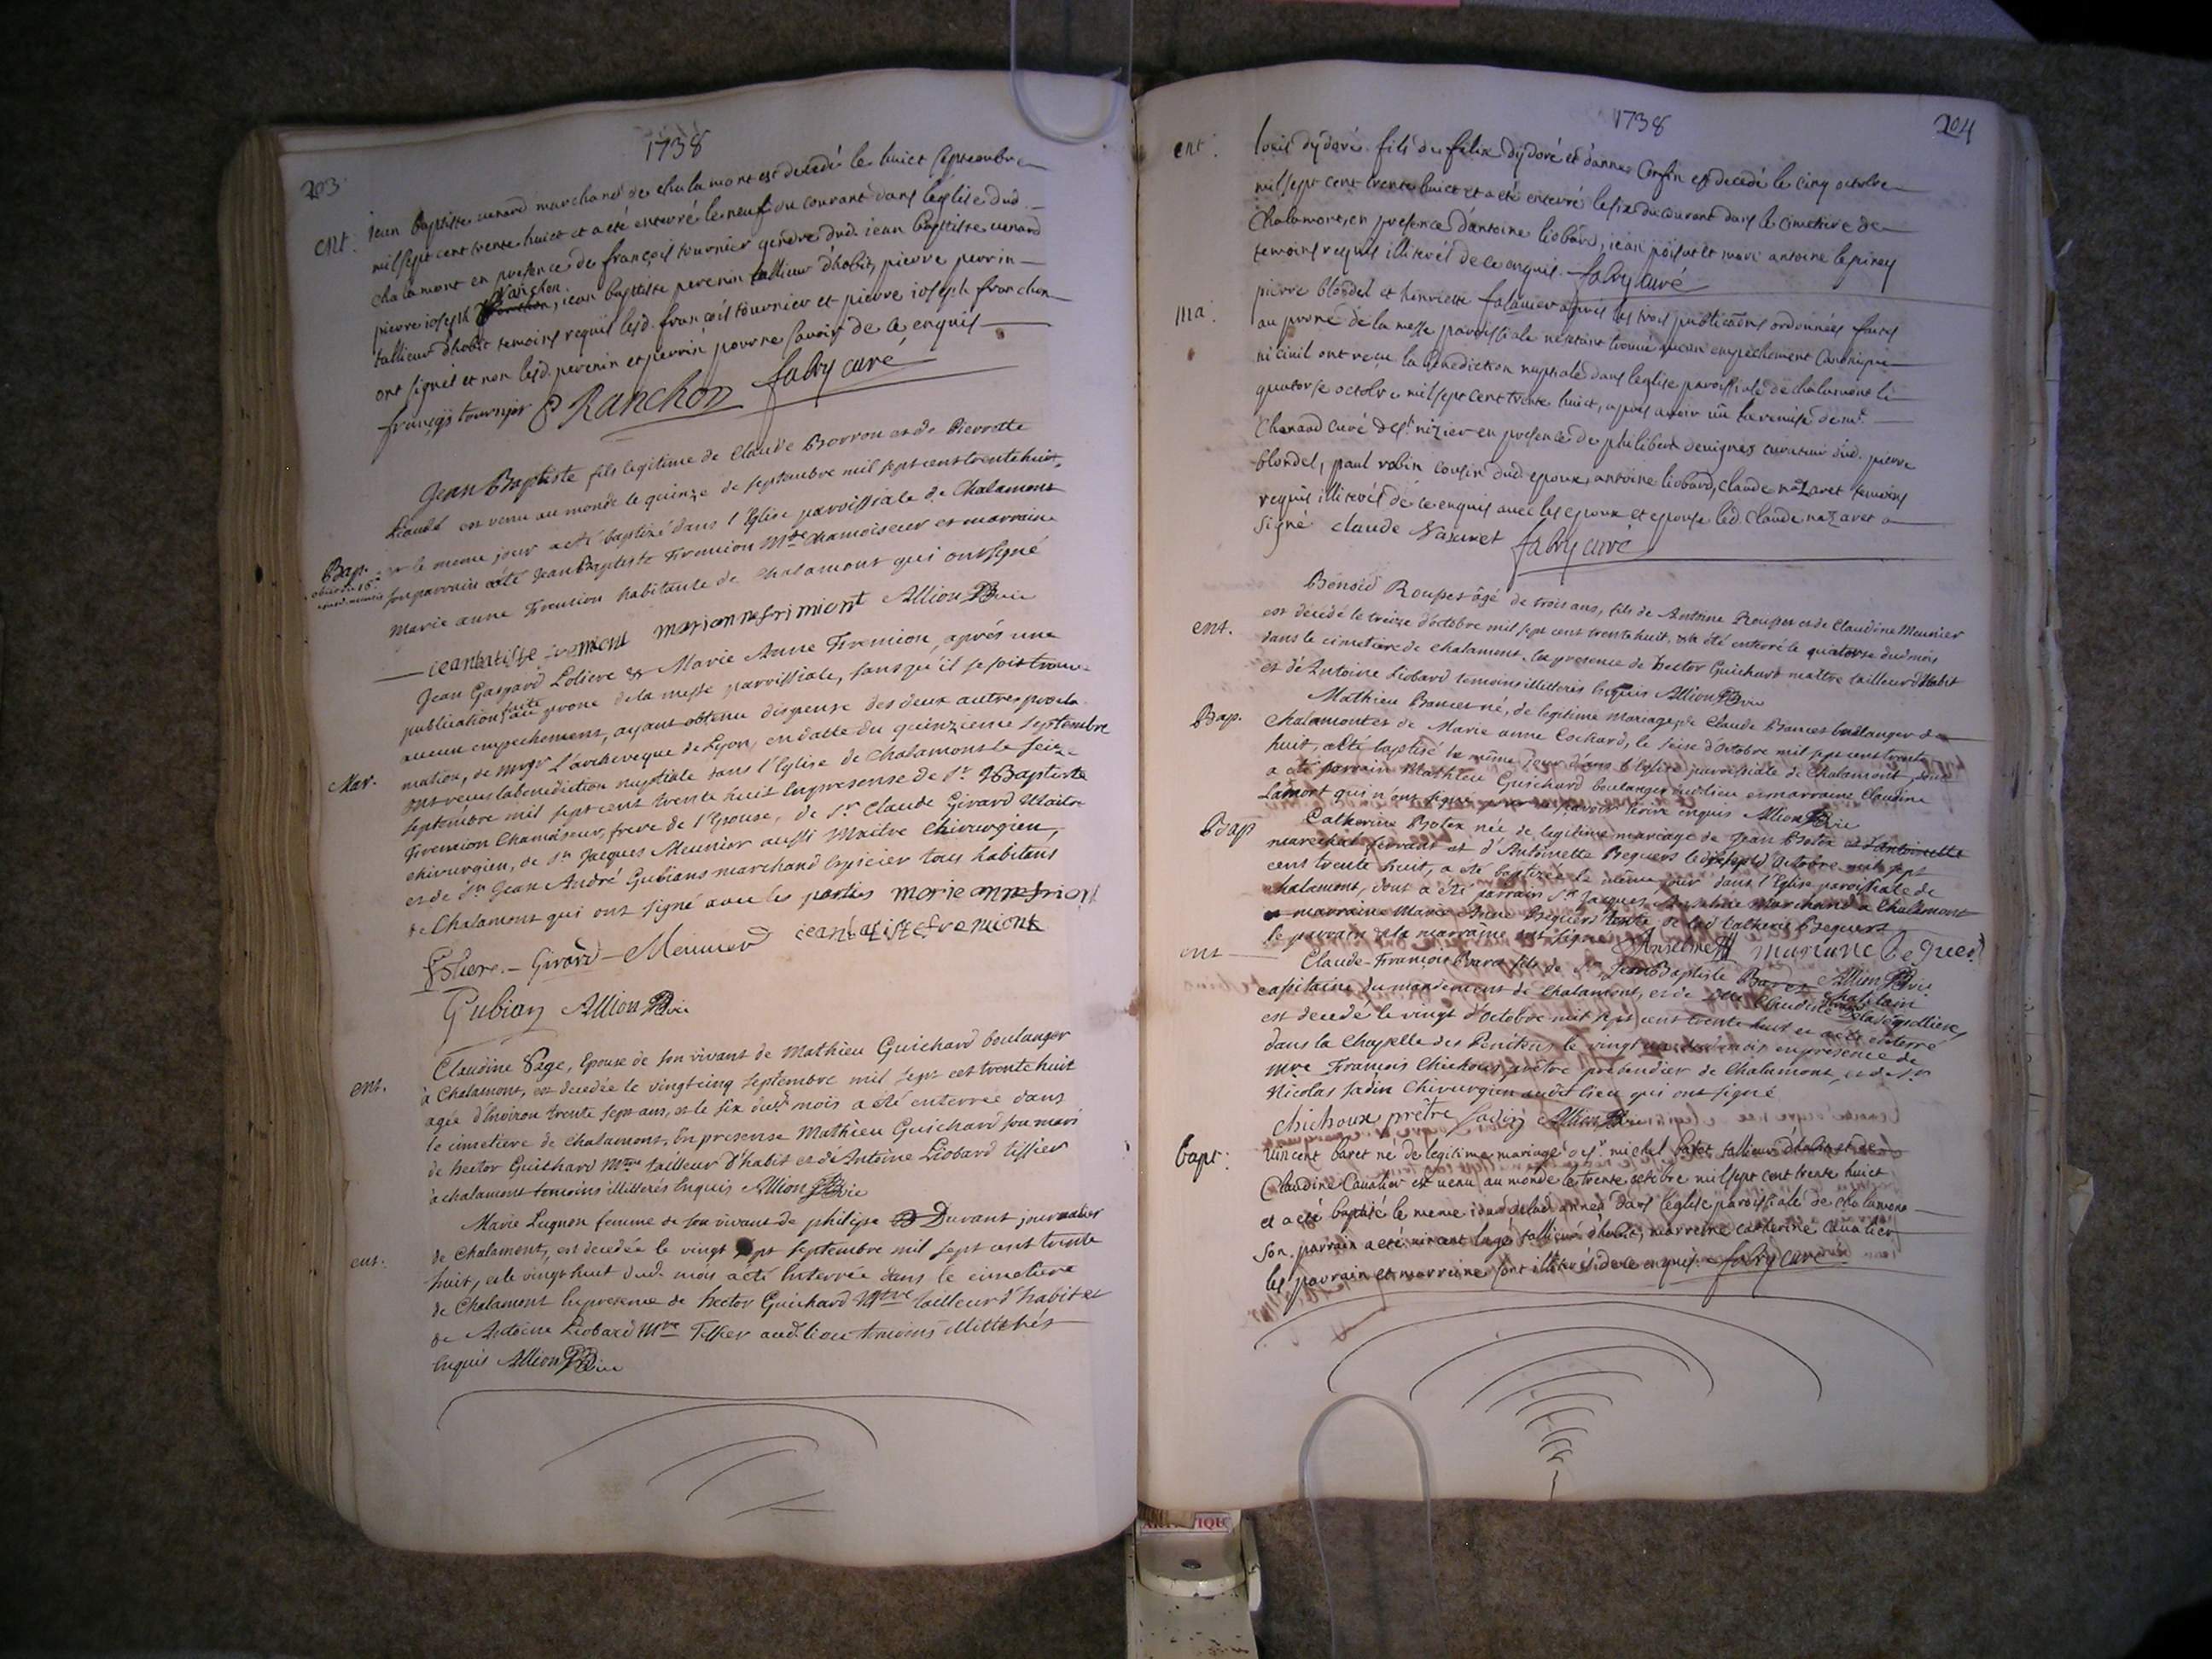 1738
203
ent. Jean baptiste uenard marchand de chalamont est decedé le huict septembre
mil sept cent trente huict et a eté enterré le neuf du courant dans l'eglise dud.
chalamont en presence de françois tournier gendre dud. iean baptiste uenard
pierre ioseph Ranchon, iean baptiste perenin tallieur d'habit, pierre perrin
tallieur d'habit temoins requis lesd. françois tournier et pierre ioseph franchon
ont signés et non lesd. perenin et perrin pour ne savoir de ce enquis
françois tournier P Ranchon fabry curé
Jean Baptiste fils legitime de Claude Borron et de Pierrette
est venu au monde le quinze de septembre mil sept cent trente huit,
Bap. et le meme jour a eté baptizé dans l'Eglise paroissiale de Chalamont
son parrain a eté Jean Baptiste Fremion Mtre Chamoiseur et marraine
Marie anne Fremion habitante de Chalamont qui ont signé
jeanbatiste fremiont mariannefrimiont Allion Vic
Jean Gaspard Loliere & Marie Anne Fremion, aprés une
publication faite au prone de la messe parroissiale, sans qu'il se soit trouvé
aucun empechement, ayant obtenu dispense des deux autres procla-
mation, de Mgr L'archeveque de Lyon, en datte du quinzieme septembre
Mar. ont reçus la benediction nuptiale dans l'Eglise de Chalamont le seize
septembre mil sept cent trente huit En presense de Sr JBaptiste
Fremion Chamoiseur, frere de l'Epouse, de Sr Claude Girard Maitre
chirurgien, de Sr Jacques Meunier aussi Maitre Chirurgien,
et de Sr Jean André Gubians marchand Epicier tous habitans
de Chalamont qui ont signé avec les parties marie anne frion
Loliere - Girard - Meunier jeanbatiste fremiont
Gubian Allion Vic
Claudine Page, Epouse de son vivant de Mathieu Guichard boulanger
ent. à Chalamont, est decedée le vingt cinq septembre mil sept cet trente huit
agée d'Environ trente sept ans, et le six dud. mois a eté enterrée dans
le cimetiere de chalamont, En presense Mathieu Guichard son mari
de hector Guichard Mtre tailleur d'habit et de Antoine Liobard tissier
à chalamont temoins illitterés Enquis Allion Vic
Marie Lugnon femme de son vivant de philipe Durant journalier
ent. de Chalamont, est decedée le vingt sept septembre mil sept cent trente
huit, et le vingt huit dud. mois a eté Enterrée dans le cimetiere
de Chalamont En presence de hector Guichard Mtre tailleur d'habit et
de Antoine Liobard Mre Tissier aud. lieu temoins illitterés
Enquis Allion Vic
1738
204
ent. dydoré fils de felix dydoré et d'anne Corfin est decedé le cinq octobre
mil sept cent trente huict et a eté enterré le six du courant dans le cimetiere de
Chalamont, en presence d'antoine liobard, iean poisat et marc antoine lepiney
temoins requis illiterés de ce enquis. fabry curé
ma. pierre blondel et henriette falauier aprés les trois publications ordonnées faites
au prone de la messe paroissiale ne s'etant trouué aucun empechement Canonique
ni ciuil ont reçu la benediction nuptiale dans l'eglise paroissiale de chalamont le
quatorse octobre mil sept cent trente huict, apres auoir uû la remise de mr.
Chanard curé de st nizier en presence de philibert deuignes curateur dud. pierre
blondel, paul robin cousin dud. epoux, antoine liobard, claude nazaret temoins
requis illiterés de ce enquis auec les epoux et epouse led. Claude nazaret a
signé claude Nasaret fabry curé
Benoid Roupet âgé de trois ans, fils de Antoine Roupet et de Claudine Meunier
ent. est décédé le treize d'octobre mil sept cent trente huit, & a été enterré le quatorze dud. mois
dans le cimetiere de chalamont, En presence de hector Guichard maître tailleur d'habit
et de Antoine Liobard temoins illitterés Enquis Allion Vic
Mathieu Bances né, de legitime mariage, de Claude Bances boulanger de
Bap. Chalamont et de Marie anne Cochard, le seise d'octobre mil sept cent trente
huit, a eté baptisé le même jour dans l'Eglise parroissiale de Chalamont, dont
a été parrain Mathieu Guichard boulanger dud. lieu et marraine Claudine
Lamort qui n'ont signé pour ne savoir Ecrire enquis Allion Vic
Bap Catherine Botex née de legitime mariage de Jean Botex
marechal ferrant et d'Antoinette Beguers le dixsept d'octobre mil sept
cent trente huit, a été baptizée le même jour dans l'Eglise paroissiale de
chalamont, dont a été parrain Sr Jacques Anselme Marchand à Chalamont
et marraine Marie Anne Beguers tante de lad. Catherine Beguers
le parrain et la marraine ont signé Anselme mariane Beguerd
Allion Vic
ent Claude-François Baret fils de Sr Jean Baptiste Baret Chatelain
capitaine du mandement de chalamont, et de Dlle Claudine
est decedé le vingt d'octobre mil sept cent trente huit et a eté enterré
dans la Chapelle des Penitens le vingt un dud. mois en presence de
Mre François Chichoux, prêtre prebendier de Chalamont, et de Sr
Nicolas Jadin Chirurgien au dit lieu qui ont signé
chichoux prêtre Jadin Allion Vic
bapt. Vincent baret né de legitime mariage de sr. michel baret tallieur d'habit et de
Claudine Caualier est uenu au monde le trente octobre mil sept cent trente huict
et a eté baptisé le meme iour de lad. année dans l'eglise paroissiale de chalamont
son parrain a eté uincent lugé tallieur d'habit, marreine catherine caualier
les parrain et marreine sont illiterés de ce enquis. fabry curé